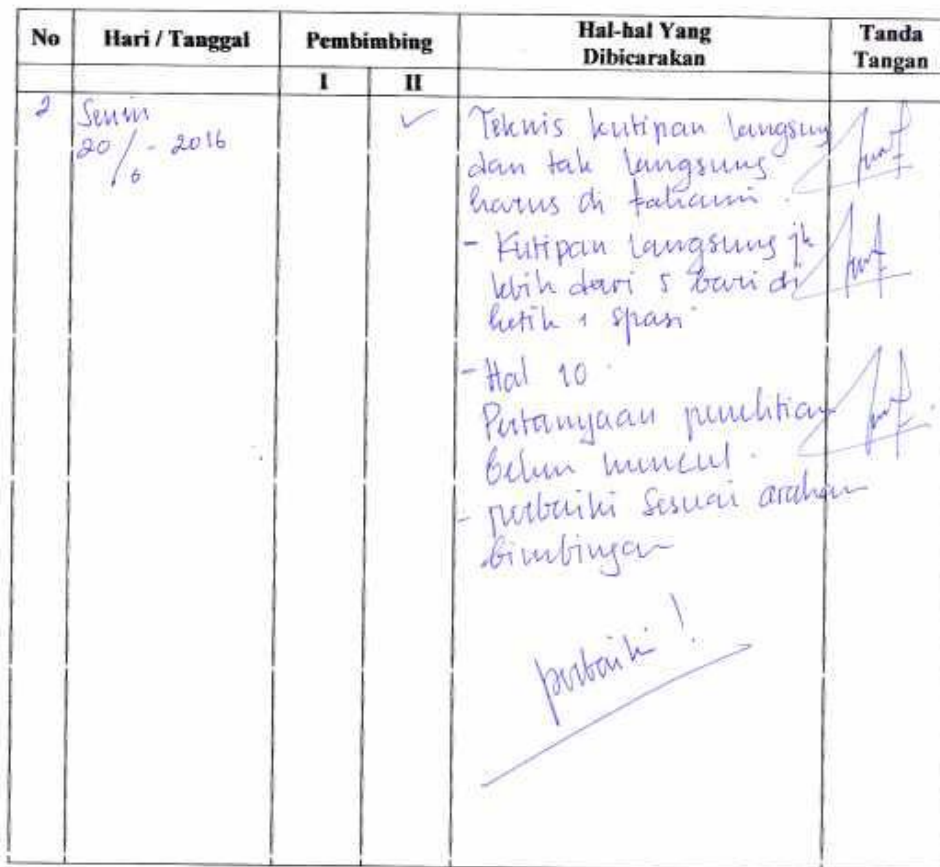 No Hari / Tanggal Pembimbing Hal-hal Yang Dibicarakan Tanda Tangan
I II
2 Senin ✓ Teknis kutipan langsung
20/6 - 2016 dan tak langsung
harus di fahami.
- Kutipan langsung jk
lebih dari 5 bari di
ketik 1 spasi
- Hal 10.
Pertanyaan penelitian
belum muncul.
- perbaiki sesuai arahan
bimbingan
perbaiki !